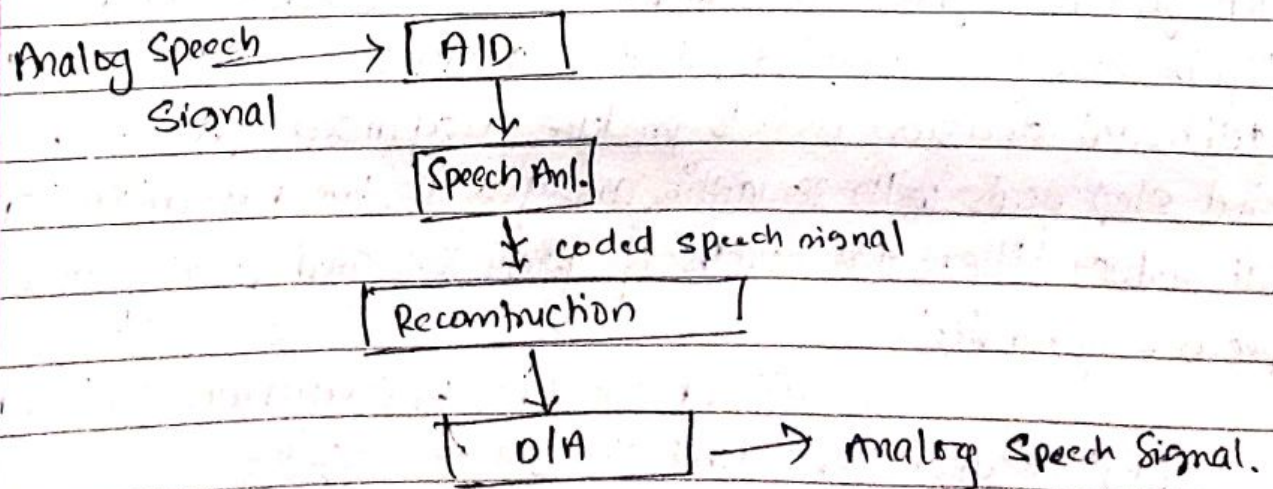 Analog Speech
Signal
A/D.
Speech Anl.
coded speech signal
Reconstruction
D/A
Analog Speech Signal.